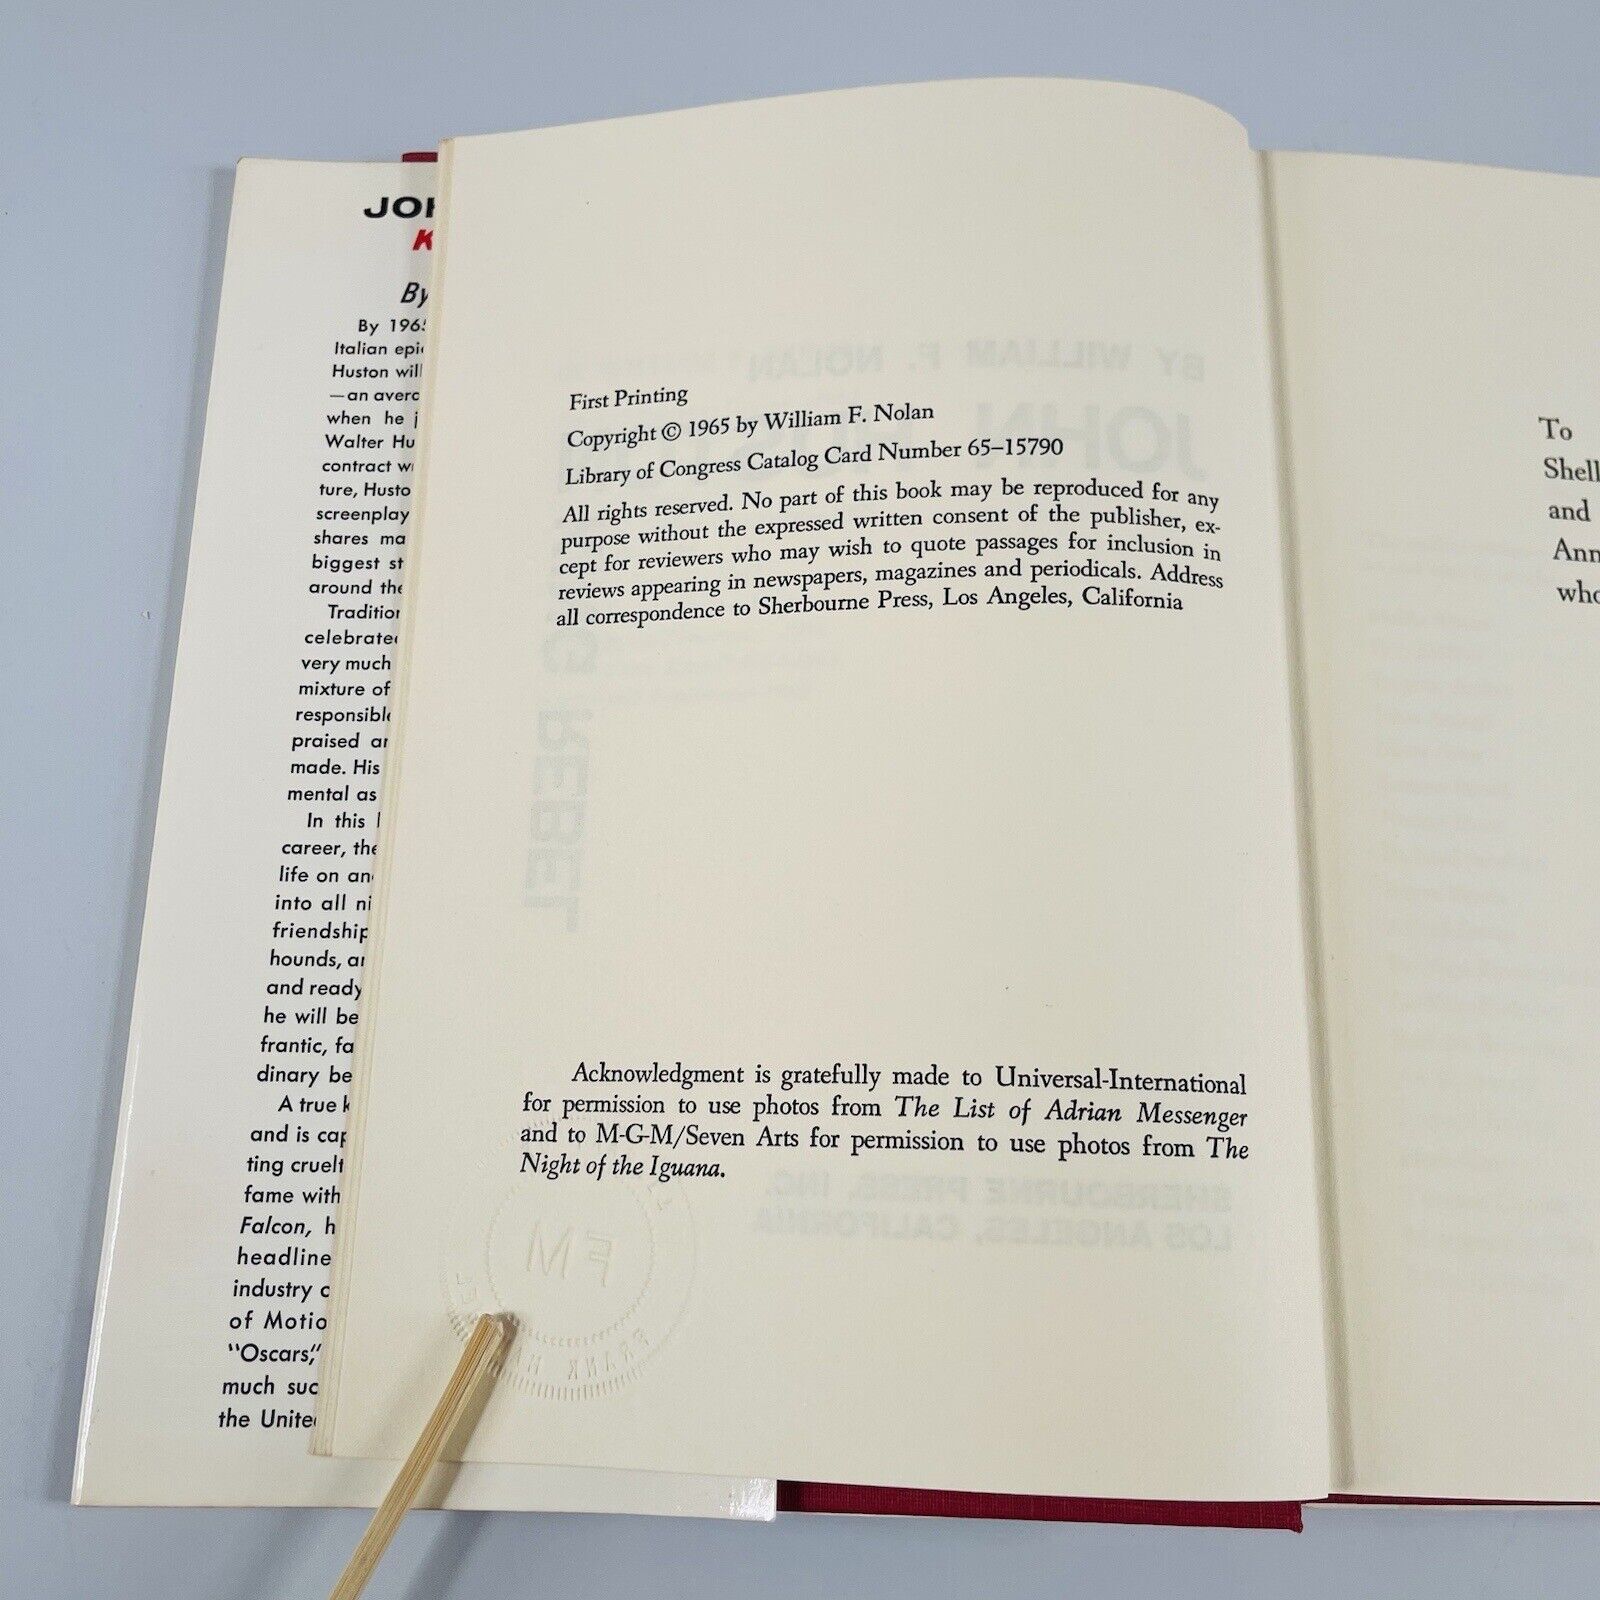 JOH
K
By
By 1965
Italian epi
Huston will
—an averc
when he j
Walter Hu
contract wi
ture, Husto
screenplay
shares ma
biggest st
around the
Tradition
celebrate
very much
mixture of
responsible
praised an
made. His
mental as
In this
career, the
life on an
into all ni
friendship
hounds, an
and ready
he will be
frantic, fa
dinary be
A true k
and is cap
ting cruelt
fame with
Falcon, h
headline
industry c
of Motio
"Oscars,"
much suc
the Unite
First Printing
Copyright © 1965 by William F. Nolan
Library of Congress Catalog Card Number 65–15790
All rights reserved. No part of this book may be reproduced for any
purpose without the expressed written consent of the publisher, ex-
cept for reviewers who may wish to quote passages for inclusion in
reviews appearing in newspapers, magazines and periodicals. Address
all correspondence to Sherbourne Press, Los Angeles, California
Acknowledgment is gratefully made to Universal-International
for permission to use photos from The List of Adrian Messenger
and to M-G-M/Seven Arts for permission to use photos from The
Night of the Iguana.
BY WILLIAM F. NOLAN
JOHN
REBEL
SHERBOURNE PRESS, INC.
LOS ANGELES, CALIFORNIA
FM
FRANK
To
Shell
and
Ann
who